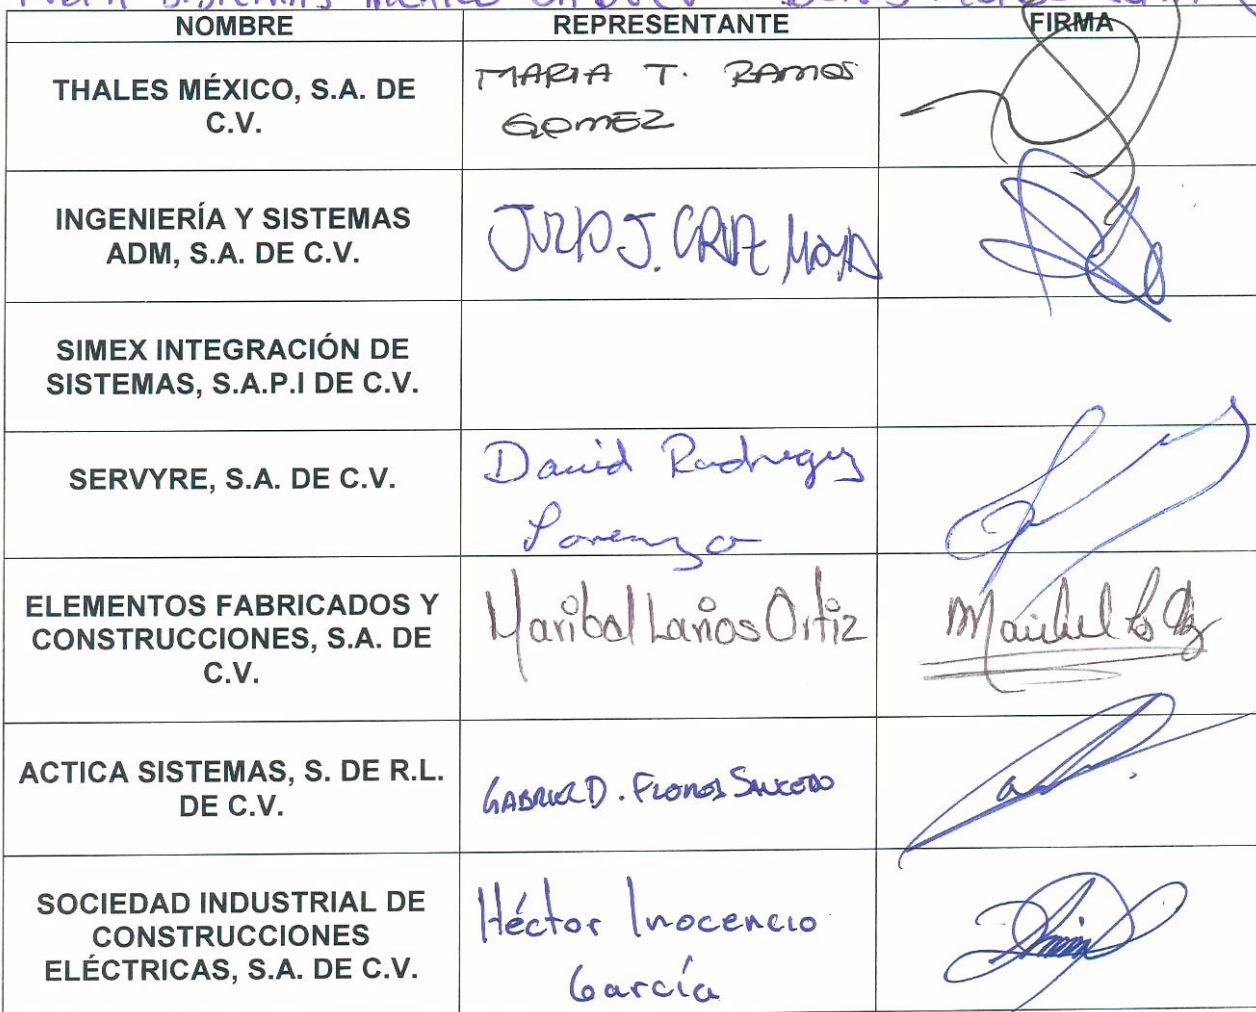 NOMBRE REPRESENTANTE FIRMA
THALES MÉXICO, S.A. DE
C.V.
MARIA T. RAMOS
GOMEZ
INGENIERÍA Y SISTEMAS
ADM, S.A. DE C.V.
J. CRUZ MOYA
SIMEX INTEGRACIÓN DE
SISTEMAS, S.A.P.I DE C.V.
SERVYRE, S.A. DE C.V.
David Rodriguez
Lorenzo
ELEMENTOS FABRICADOS Y
CONSTRUCCIONES, S.A. DE
C.V.
Maribel Laños Ortiz
Maribel
ACTICA SISTEMAS, S. DE R.L.
DE C.V.
GABRIEL D. FLORES SAUCEDO
SOCIEDAD INDUSTRIAL DE
CONSTRUCCIONES
ELÉCTRICAS, S.A. DE C.V.
Héctor Inocencio
García